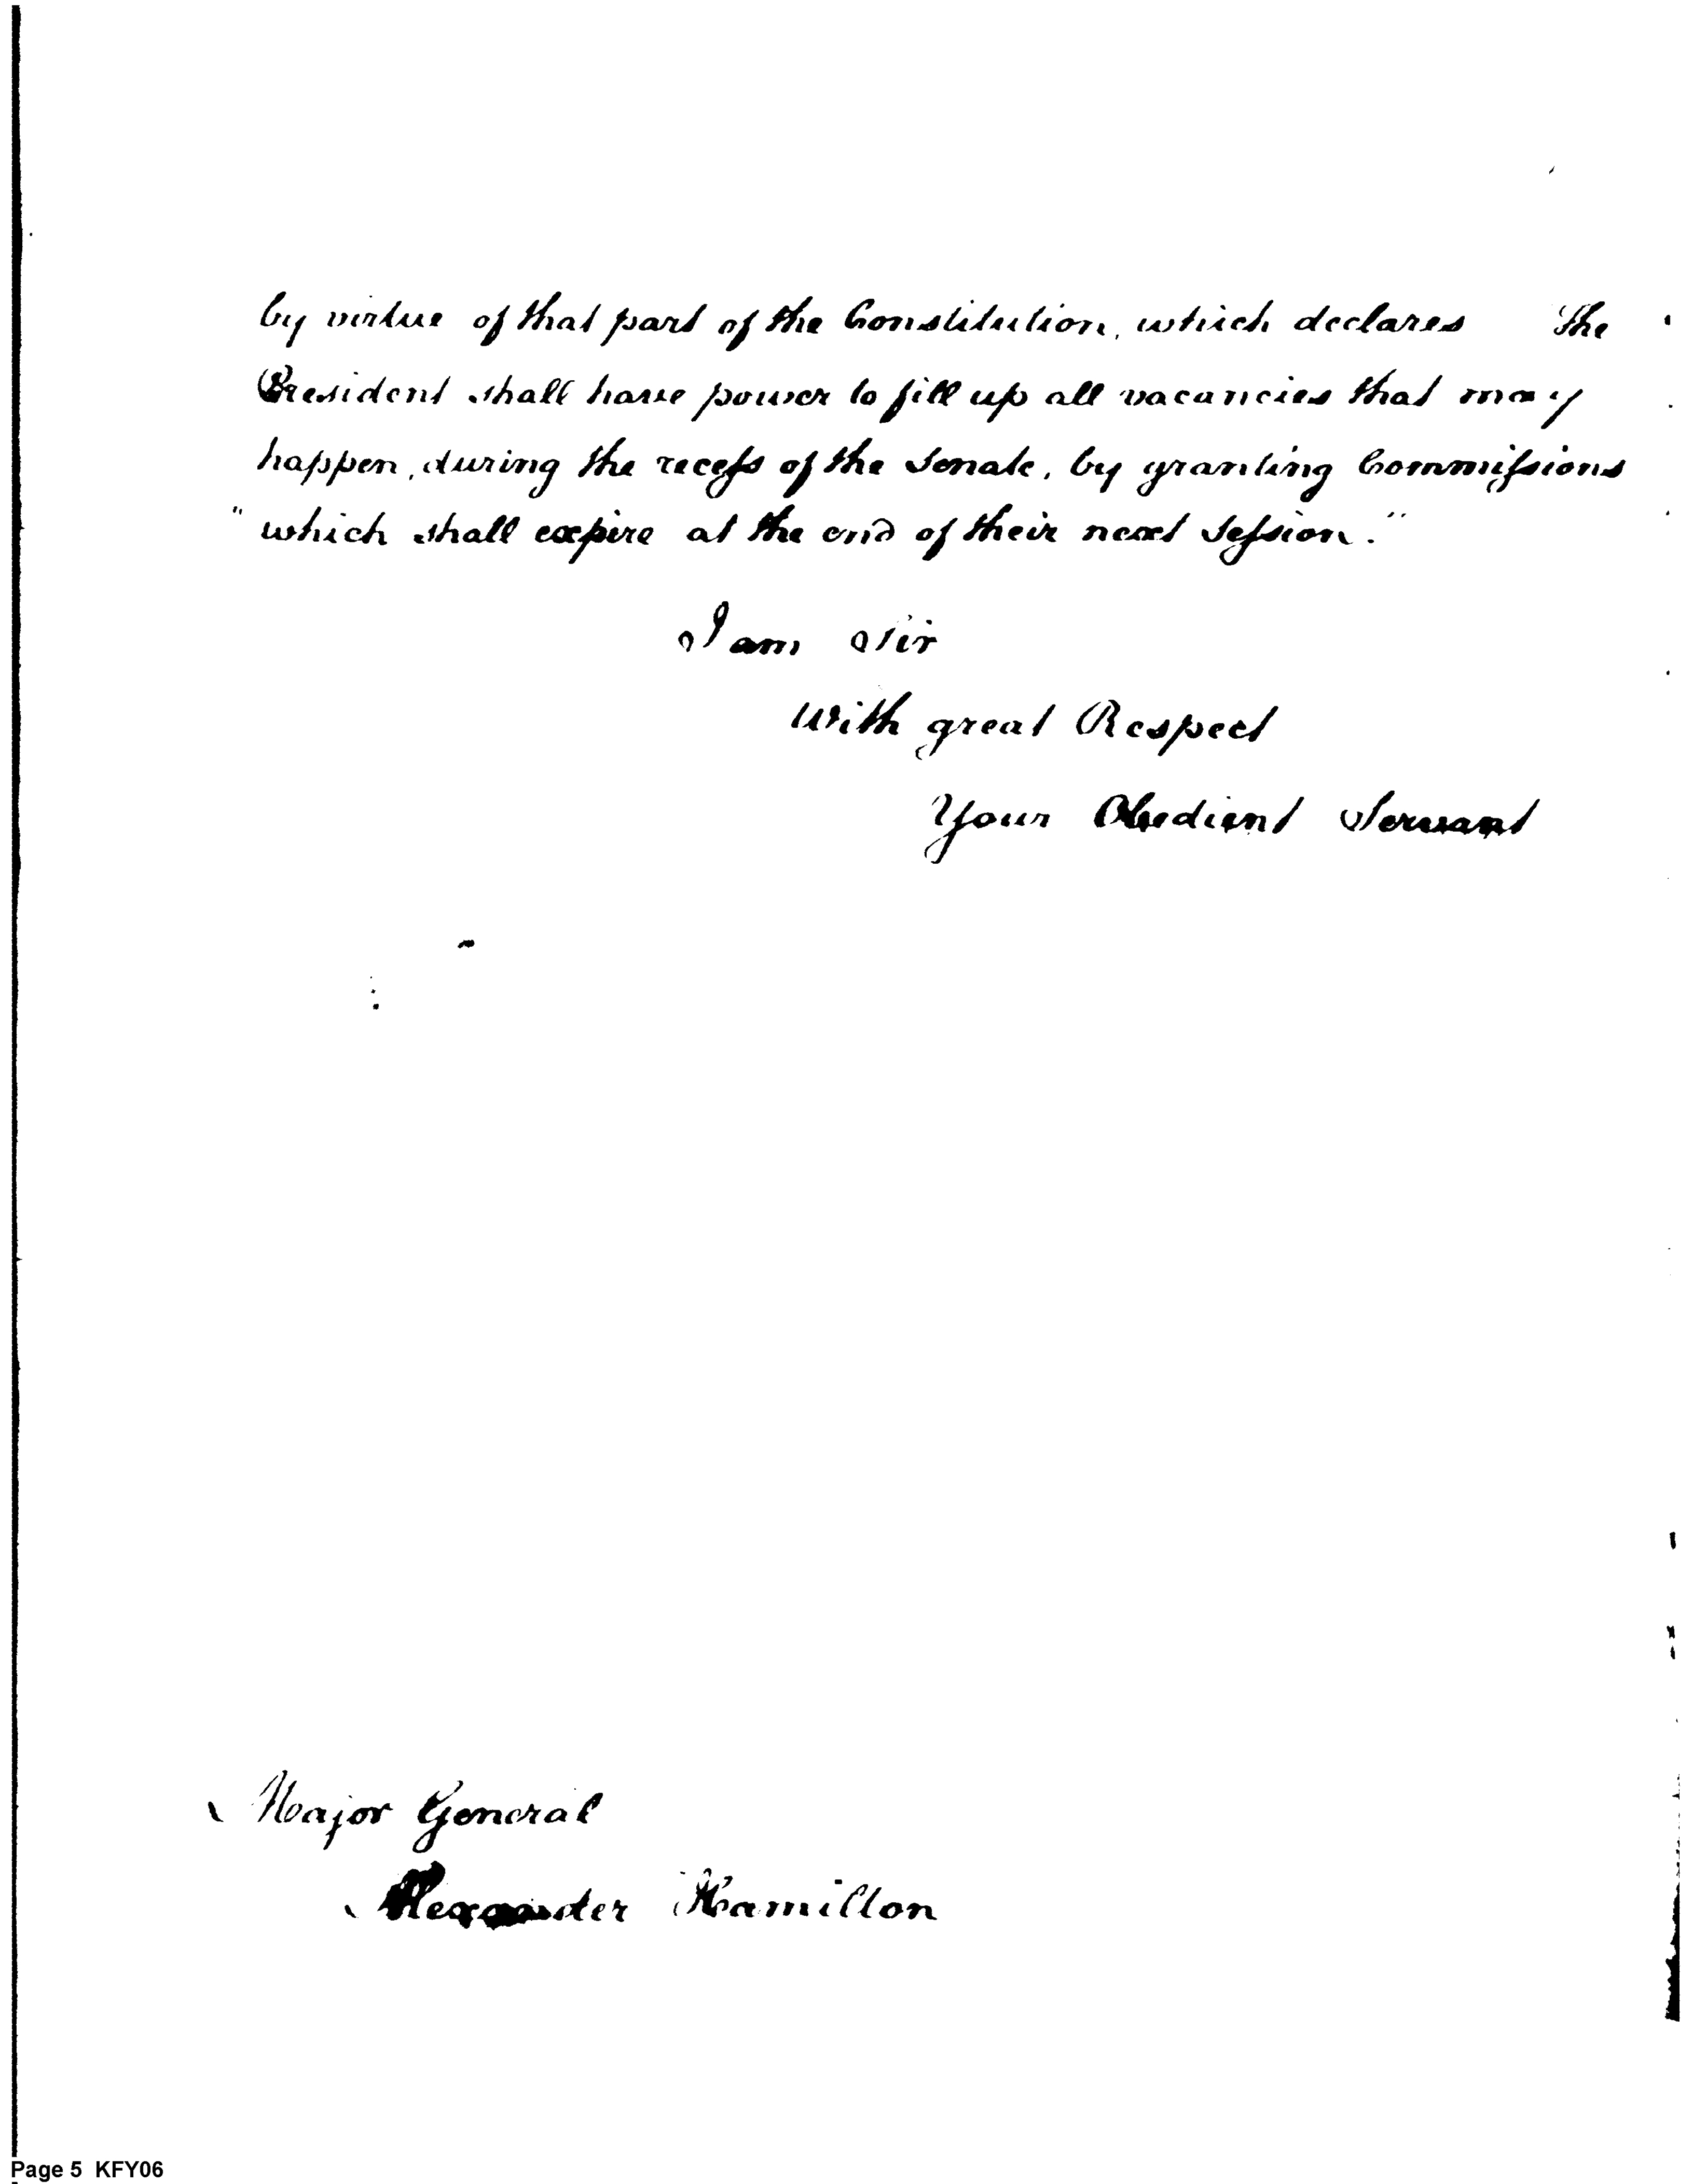 by virtue of that part of the Constitution, which declares The
President shall have power to fill up all vacancies that may
happen, during the recess of the Senate, by granting Commissions
" which shall expire at the end of their next Session."
I am Sir
With great Respect
Your Obedient Servant
Major General
Alexander Hamilton
Page 5 KFY06